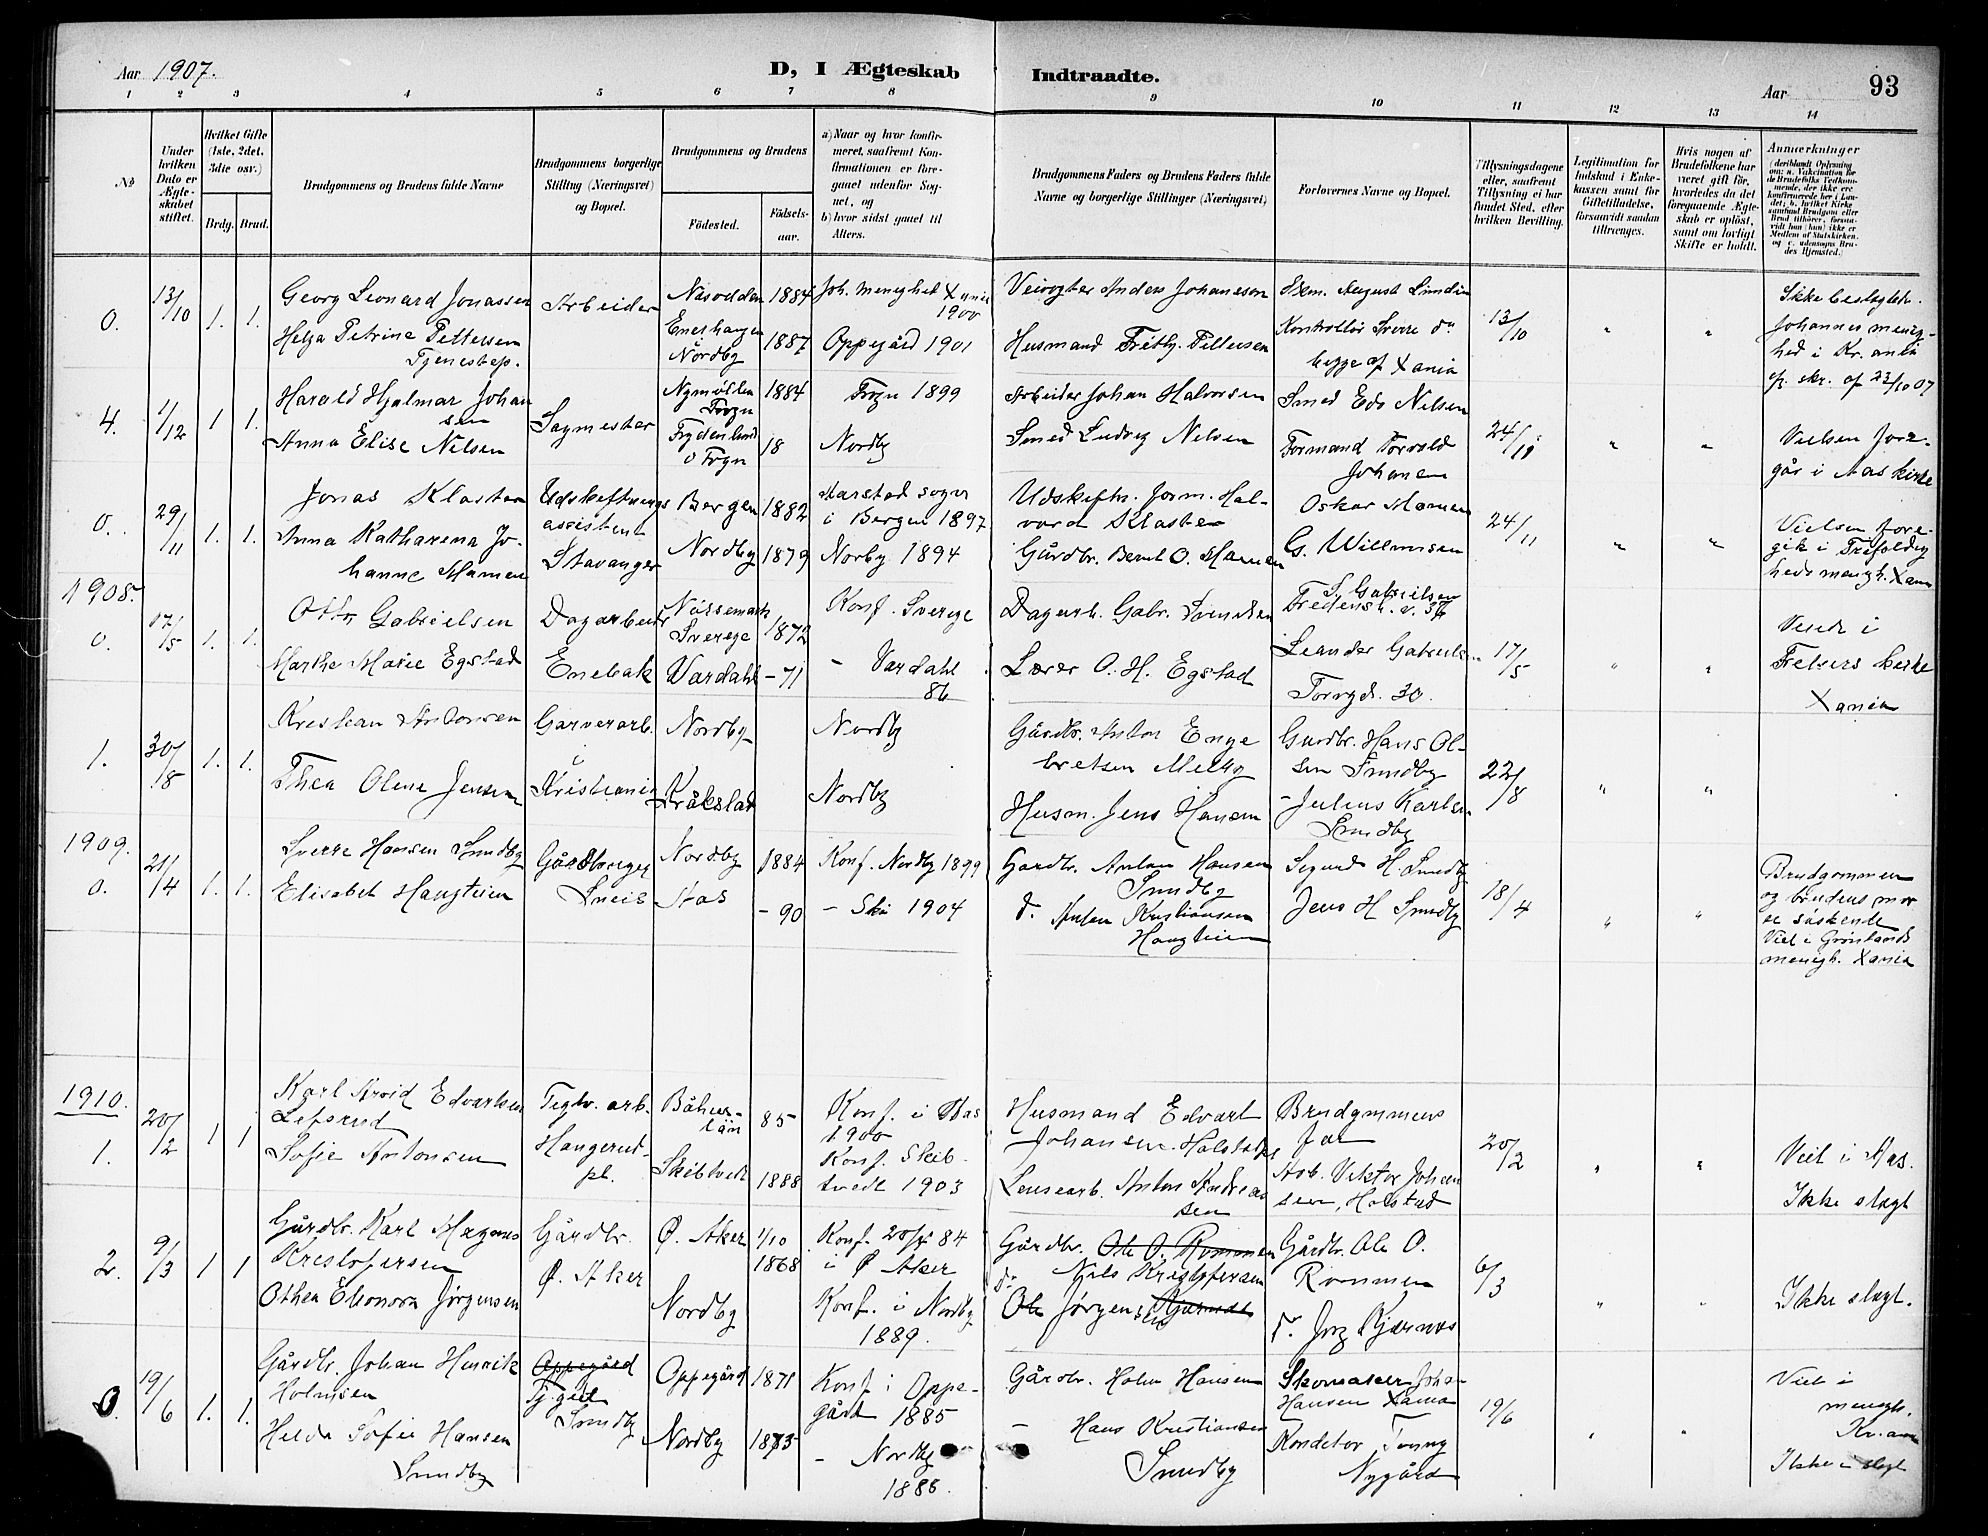 Aar 1907.
D, I Ægteskab Indtraadte.
Aar
93
1 2 3 4 5 6 7 8 9 10 11 12 13 14
No
Under hvilken Dato er Ægteskabet stiftet.
Hvilket Gifte (1ste, 2det, 3die osv.)
Brdg. Brud.
Brudgommens og Brudens fulde Navne
Brudgommens borgerlige Stilling (Næringsvei) og Bopæl.
Brudgommens og Brudens
Fødested.
Fødselsaar.
a) Naar og hvor konfirmeret, saafremt Konfirmationen er foregaaet udenfor Sognet, og
b) hvor sidst gaaet til Alters.
Brudgommens Faders og Brudens Faders fulde Navne og borgerlige Stillinger (Næringsvei)
Forlovernes Navne og Bopæl.
Tillysningsdagene eller, saafremt Tillysning ei har fundet Sted, efter hvilken Bevilling.
Legitimation for Indskud i Enkekassen samt for Giftetilladelse, forsaavidt saadan tiltrænges.
Hvis nogen af Brudefolkene har været gift før, hvorledes da det foregaaende Ægteskab er opløst, samt om lovligt Skifte er holdt.
Anmærkninger
(deriblandt Oplysning om: a. Vakcination for de Brudefolks Vedkommende, der ikke ere konfirmerede her i Landet; b. hvilket Kirkesamfund Brudgom eller Brud tilhører, forsaavidt han (hun) ikke er Medlem af Statskirken, og c. udensogns Brudes Hjemsted.)
0. 13/10 1. 1.
Georg Leonard Jonassen
Helga Petrine Pettersen
Tjenestep.
Arbeider
Næsodden 1884
Enebakk
Nordby 1887
Joh. menighet Xania
1900
Oppegård 1901
Veivogter Anders Johanesson
Husmand Fritlj. Pettersen
Exm. August Lundin
Kontrollør Sverre do
begge af Xania
13/10 " "
Ikke beslegtede.
Johannes menighed i Kr.ania
efr. skr. af 23/10 07
4. 1/12 1 1.
Harald Hjalmar Johansen
Anna Elise Nilsen
Sagmester
Nymöllen
Frogn 1884
Frydenlund
Frogn 18
Frogn 1899
Nordby
Arbeider Johan Halvorsen
Smed Ludvig Nilsen
Smed Edv Nilsen
Formand Torvald
Johansen
24/11 " "
Vielsen foregår i Aas kirke
0. 29/11 1. 1.
Jonas Kloster
Anna Katharena Johanne Mamen
Udskiftnings
assistent
Stavanger
Bergen 1882
Nordby 1879
Aarstad sogn
i Bergen 1897
Norby 1894
Udskiftn. form. Halvard Kloster
Gårdbr. Bernt O. Mamen
Oskar Mamen
G. Willumsen
24/11 " "
Vielsen foregik i Trefoldighedsmengh. Xania
1908.
0. 17/5 1. 1.
Otto Gabrielsen
Marthe Marie Egstad
Dagarbeider
Enebak
Nössemark
Sverege 1872
Vardahl -71
Konf. Sverege
- Vardahl
86
Dagarb. Gabr. Svendsen
Lærer O. H. Egstad
S. Gabrielsen
Fredensb. v. 36
Leander Gabrielsen
Torvgd. 30.
17/5 " "
Viede i
Frelsers kirke
Xania
1. 30/8 1. 1.
Kristian Antonsen
Thea Oline Jensen
Garverarb.
i
Kristiania
Nordby
Kråkstad
Nordby
Nordby
Gårdbr. Anton Enge
bretsen Melby
Husm. Jens Hansen
Gårdbr. Hans Olsen Sundby
Julius Karlsen
Sundby
22/8 " "
1909.
0. 21/4 1. 1.
Sverre Hansen Sundby
Elisabet Haugteien
Gårdbruger
Sneis
Nordby 1884
Aas -90
Konf. Nordby 1899
- Ski 1904
Gardbr. Anton Hansen
Sundby
do. Anton Kristiansen
Haugteien
Sigurd H. Sundby
Jens H Sundby
18/4 " "
Brudgommen
og brudens mor
er söskende
Viet i Grønlands
menigh. Xania
1910.
1. 20/2 1 1
Karl Arvid Edvartsen
Lefsrud
Sofie Antonsen
Teglv. arb.
Haugerud-
pl.
Båhus-
län 85
Skibtvedt 1888
Konf. i Aas
1900
Konf. Skibtvedt 1903
Husmand Edvart
Johansen. Holstad
Lensearb. Anton Andreassen
Brudgommens
far
Arb. Viktor Johansen, Holstad
20/2 " "
Viet i Aas.
Ikke slegt
2. 9/3 1 1
Gårdbr. Karl Magnus
Kristofersen
Othea Eleonora Jørgensen
Gårdbr.
Ø. Aker
Ø. Aker 1/10
1868
Nordby
Konf. 84
i Ø Aker
Konf. i Nordby
1889.
Gårdbr. Ole O. Rommen
do Nils Kristofersen
Ole Jørgensen Kjærnes
Gårdbr. Ole O.
Rommen
do. Jørg Kjærnes
6/3 " "
Ikke slegt.
0. 19/6 1. 1.
Gårdbr. Johan Henrik
Holmsen
Helda Sofie Hansen
Sundby
Oppegård
Sundby
Oppegård 1871
Nordby 1873
Konf i Oppegård 1885
- Nordby
1888.
Gårdbr. Holm Hansen
- Hans Kristiansen
Sundby
Skomaker Johan
Hansen Xania
Konditor Tonny
Nygård
19/6 " "
Viet i
menigh.
Kr.ania
Ikke i slegt